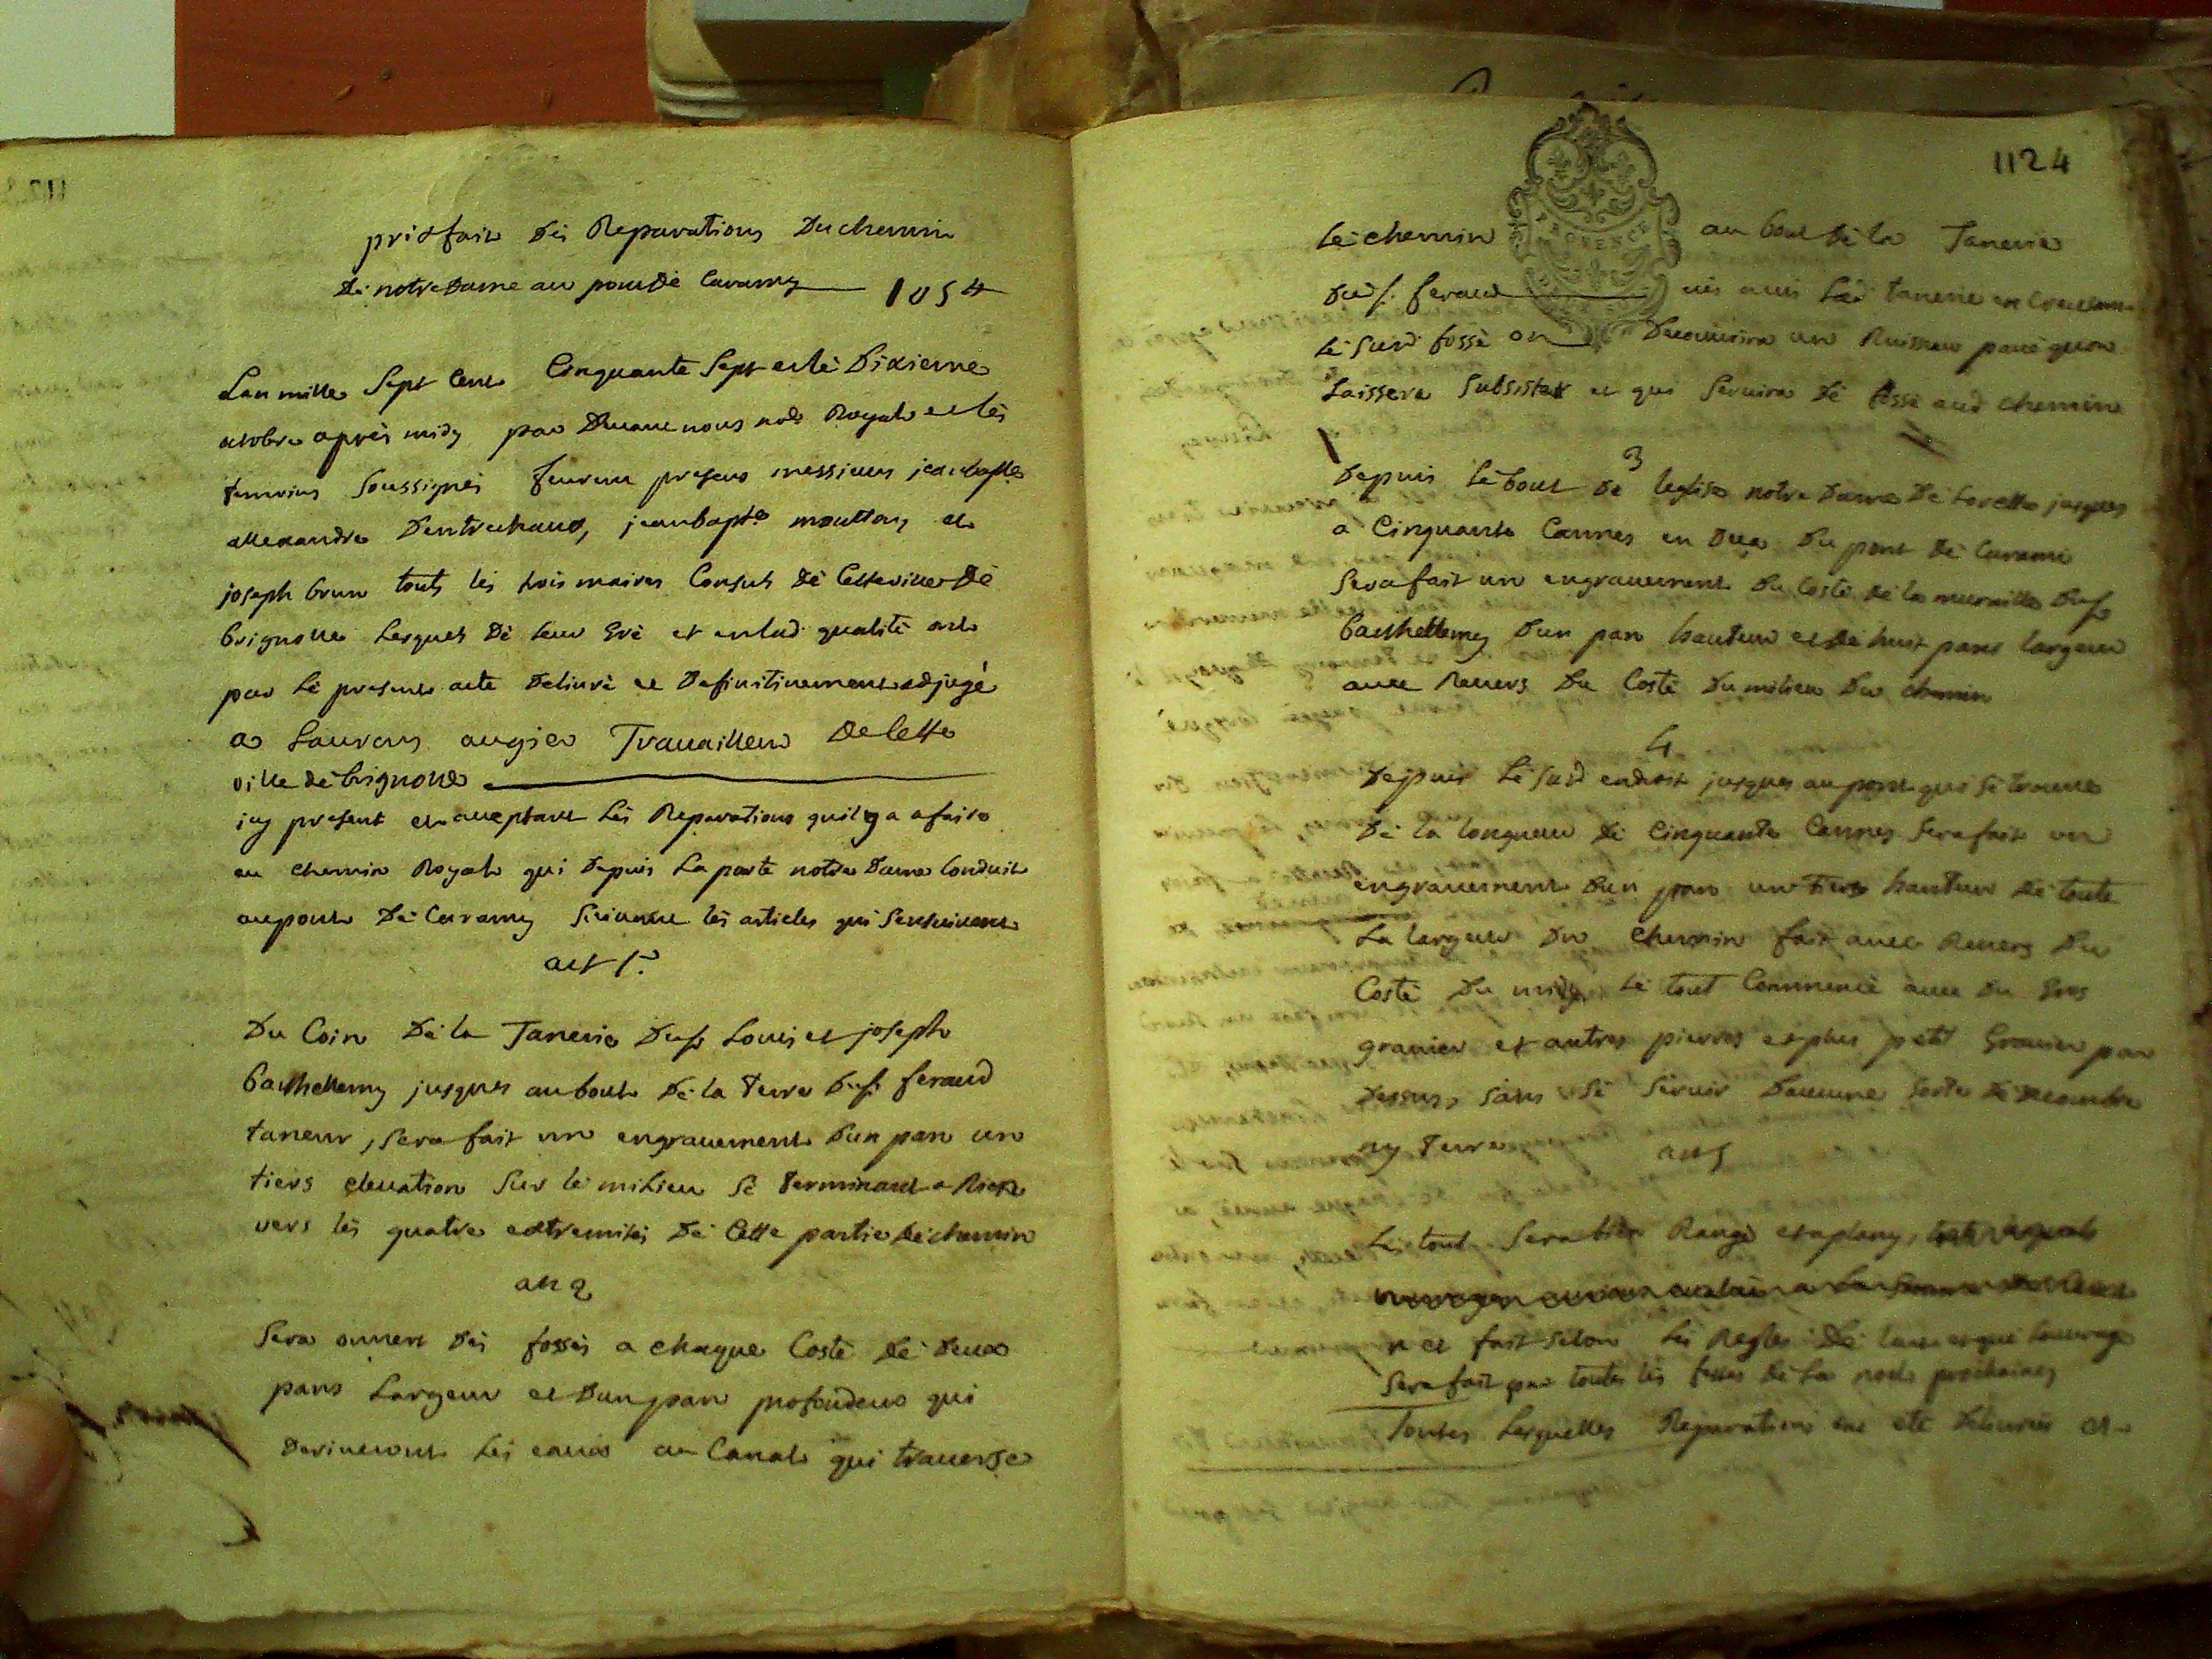 prixfait des Reparations Du chemin
de notre Dame au pont de Caramy 105#
Lan mille Sept Cent Cinquante Sept et le Dixieme
octobre après midy par Devant nous no.re Royal et les
temoins Soussignés furent presens messieurs jean bapte
allexandre Dentrechaux, jean bapte moutton, et
joseph brun touts les trois maires Consuls de Cette ville de
brignolle Lesquels de leur gré et en lad. qualité ont
par le present acte delivré et Definitivement adjugé
a Laurens augier Travailleur de Cette
ville de brignolle
icy present et acceptant Les Reparations quil y a a faire
au chemin Royal qui depuis La porte notre Dame Conduit
au pont de Caramy Suivant les articles qui Sensuivent
art 1.er
Du Coin de la Tanerie des Srs Louis et joseph
barthellemy jusques au bout de la terre du Sr feraud
taneur, Sera fait un engravement Dun pan un
tiers elevation Sur le milieu Se terminant a Rien
vers les quatre extremités de Cette partie de chemin
art 2
Sera ouvert des fossés a chaque Costé de deux
pans Largeur et Dun pan profondeur qui
deriveront les eaux au Canal qui traverse
1124
PROVENCE
le chemin au bout de la Tanerie
du Sr. feraud vis avis Lad. tanerie en
le Susd fossé on Decouvrira un Ruisseau pavé quon
Laissera Subsister et qui Servira de fossé aud chemin
3
Depuis le bout de leglise notre Dame de Lorette jusques
a Cinquante Cannes en deça Du pont de Carami
Sera fait un engravement du Costé de la muraille du Sr
barthellemy Dun pan hauteur et de huit pans largeur
avec Revers Du Costé Du milieu Du chemin
4
Depuis le Susd endroit jusques au pont qui Se trouve
de la longueur de Cinquante Cannes Sera fait un
engravement Dun pan un tiers hauteur de toute
La largeur Du chemin fait avec Revers Du
Costé Du midy, Le tout Commencé avec Du gros
gravier et autres pierres et plus petit Gravier par
Dessus, Sans Se Servir Daucune Sorte de decombre
ny terre art 5
Le tout Sera bien Rangé et aplany,
et fait Selon Les Regles De lart et que Louvrage
Sera fait par toutes les festes de La noel prochaines
Toutes Lesquelles Reparations ont eté Delivrées et